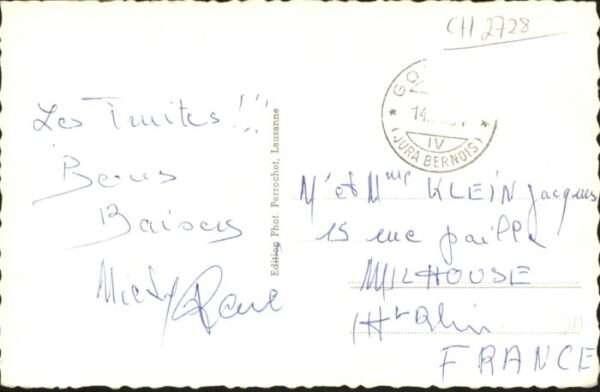 CH 2728
Les Truites !!!
Bons
Baisers
GO
14
IV
(JURA BERNOIS)
Edition Phot. Perrochet, Lausanne
Mr et Mme KLEIN Jacques
15 rue
MULHOUSE
Ht Rhin
FRANCE